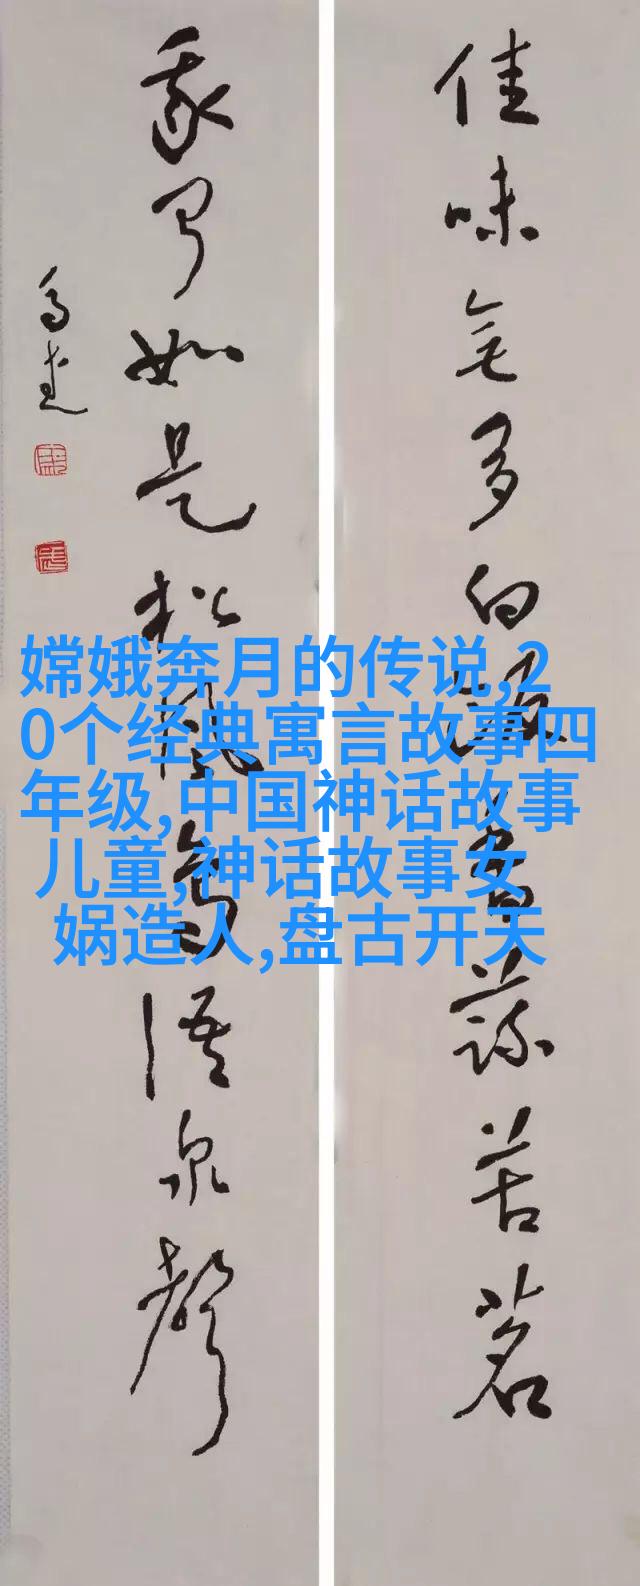 佳味無多白飯香蔬苦茗
我聞如是松風鳥語泉聲
嫦娥奔月的传说,2
0个经典寓言故事四
年级,中国神话故事
儿童,神话故事女
娲造人,盘古开天